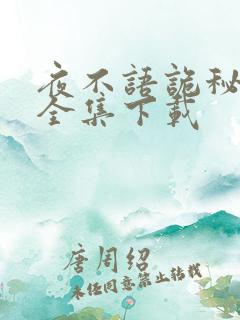 夜不語詭秘
全集下載
唐周绍
未经同意禁止转载